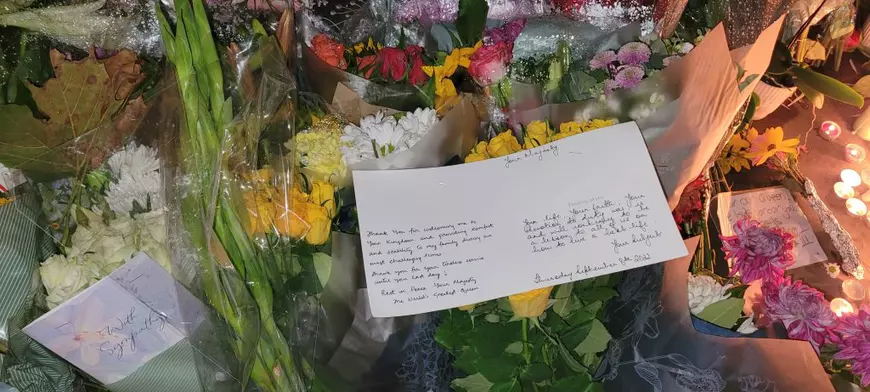 Your Majesty
Thank You for welcoming me to
Your Kingdom and providing comfort
and stability to my family during our
most challenging times
Thank you for your tireless service
until your last day;
Rest in Peace Your Majesty
The World's Greatest Queen
Your life, Your faith, Your
devotion to duty was, is
and will always be
a lesson to all of us on
how to live a best life.
Your Subject
Thursday September 8th 2022
With
Sympathy